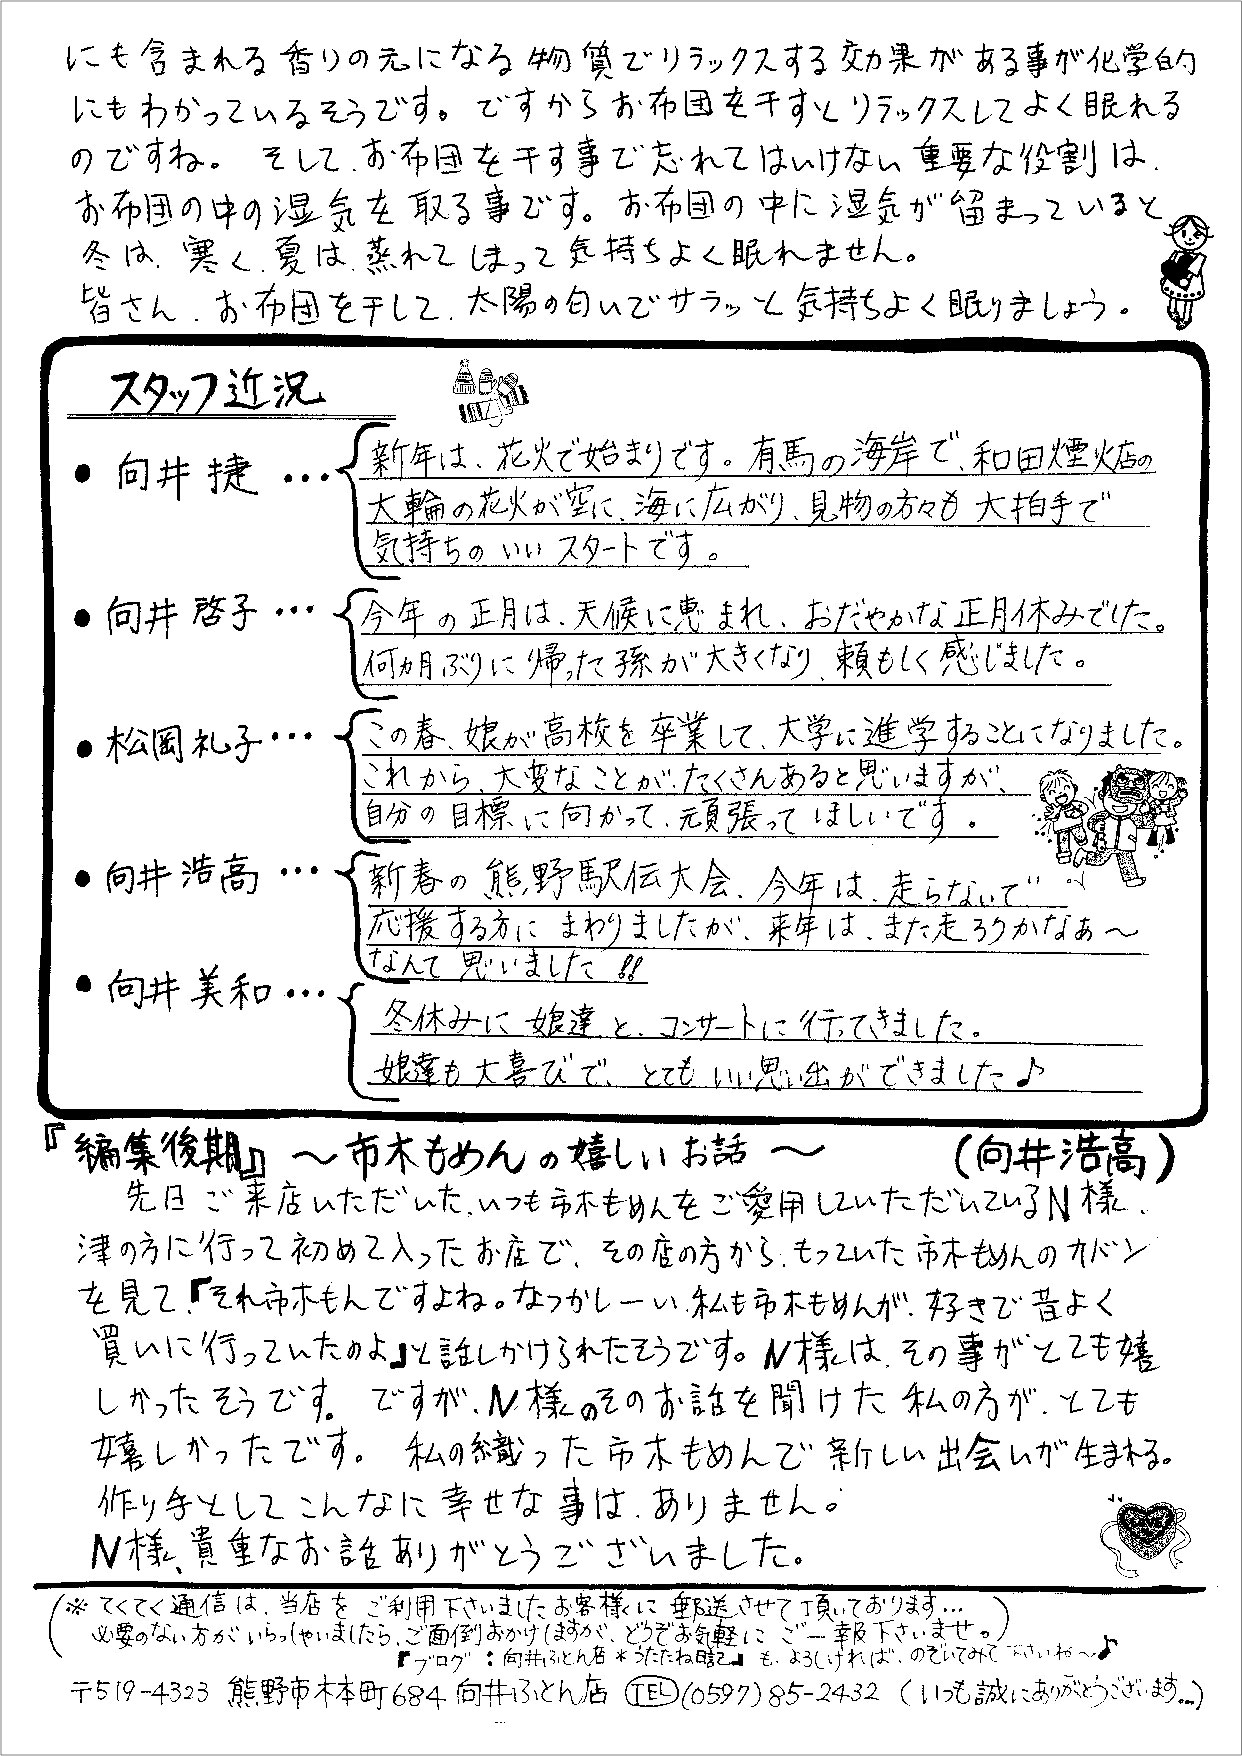 にも含まれる香りの元になる物質でリラックスする効果がある事が化学的
にもわかっているそうです。ですからお布団を干すとリラックスしてよく眠れる
のですね。 そして、お布団を干す事で忘れてはいけない重要な役割は、
お布団の中の湿気を取る事です。お布団の中に湿気が留まっていると
冬は、寒く、夏は、蒸れてしまって気持ちよく眠れません。
皆さん、お布団を干して、太陽の匂いでサラッと気持ちよく眠りましょう。
スタッフ近況
● 向井 捷 …
新年は、花火で始まりです。有馬の海岸で、和田煙火店の
大輪の花火が空に、海に広がり、見物の方々も大拍手で
気持ちのいいスタートです。
● 向井 啓子 …
今年の正月は、天候に恵まれ、おだやかな正月休みでした。
何ヵ月ぶりに帰った孫が大きくなり、頼もしく感じました。
● 松岡礼子 …
この春、娘が高校を卒業して、大学に進学することになりました。
これから、大変なことが、たくさんあると思いますが、
自分の目標に向かって、頑張ってほしいです。
● 向井浩高 …
新春の熊野駅伝大会、今年は、走らないで
応援する方にまわりましたが、来年は、また走ろうかなぁ〜
なんて思いました!!
● 向井美和 …
冬休みに娘達と、コンサートに行ってきました。
娘達も大喜びで、とてもいい思い出ができました♪
『編集後期』 〜市木もめんの嬉しいお話〜 (向井浩高)
先日ご来店いただいた、いつも市木もめんをご愛用していただいているN様、
津の方に行って初めて入ったお店で、その店の方から、もっていた市木もめんのカバン
を見て、『それ市木もんですよね。なつかしーい、私も市木もめんが、好きで昔よく
買いに行っていたのよ』と話しかけられたそうです。N様は、その事がとても嬉
しかったそうです。ですが、N様のそのお話を聞けた私の方が、とても
嬉しかったです。 私の織った市木もめんで新しい出会いが生まれる。
作り手としてこんなに幸せな事は、ありません。
N様、貴重なお話ありがとうございました。
(※てくてく通信は、当店をご利用下さいましたお客様に郵送させて頂いております…
必要のない方がいらっしゃいましたら、ご面倒おかけしますが、どうぞお気軽にご一報下さいませ。)
『ブログ:向井ふとん店*うたたね日記』も、よろしければ、のぞいてみて下さいね〜♪
〒519-4323 熊野市木本町684 向井ふとん店 TEL (0597)85-2432 (いつも誠にありがとうございます…)